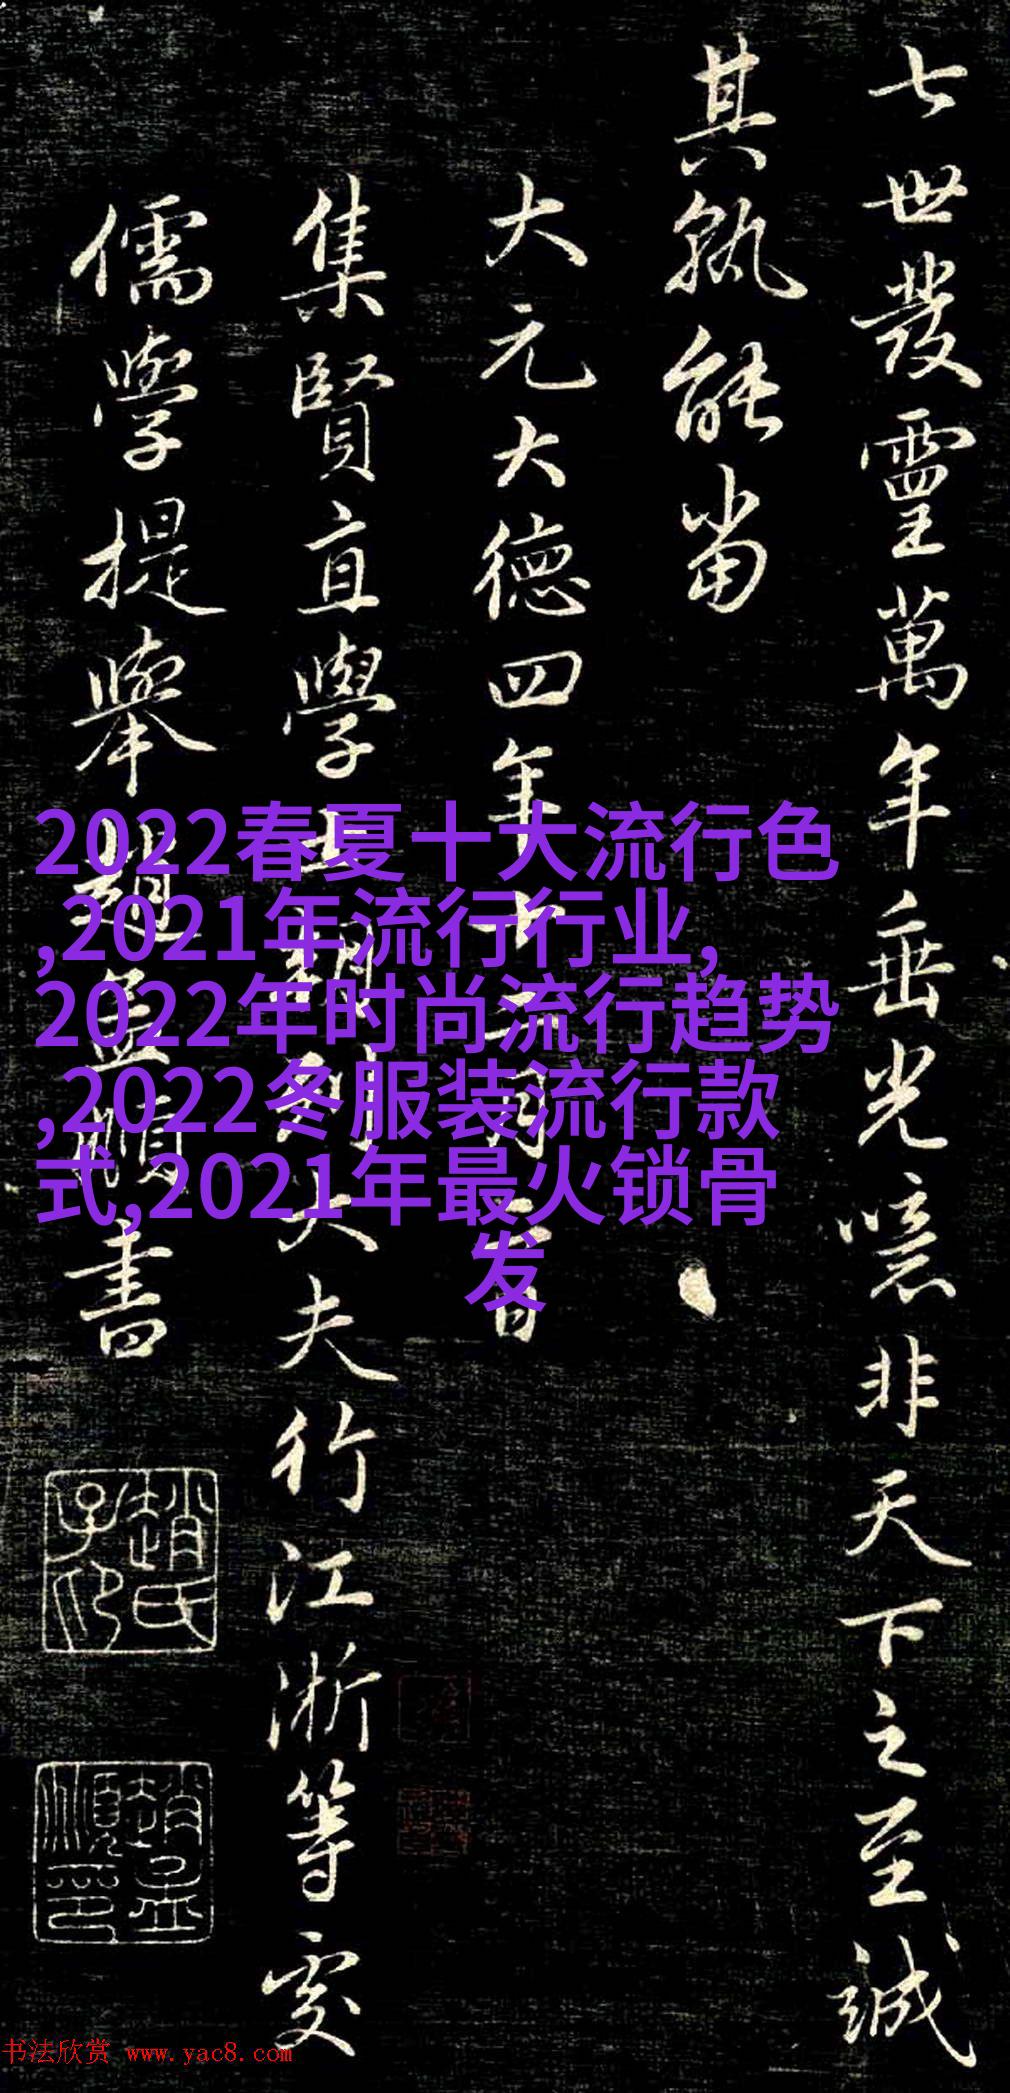 七世發靈萬年垂光噫非天下之至誠
其孰能當
大元大德四年
集賢直學士朝列大夫行江浙等處
儒學提舉趙孟頫書
趙氏子昂
趙孟頫印
2022春夏十大流行色
,2021年流行行业,
2022年时尚流行趋势
,2022冬服装流行款
式,2021年最火锁骨
发
书法欣赏 www.yac8.com